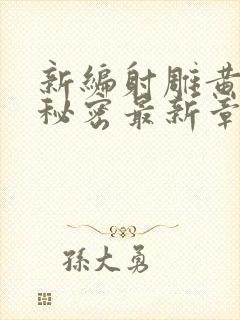 新编射雕黄
秘密最新章
孫大勇